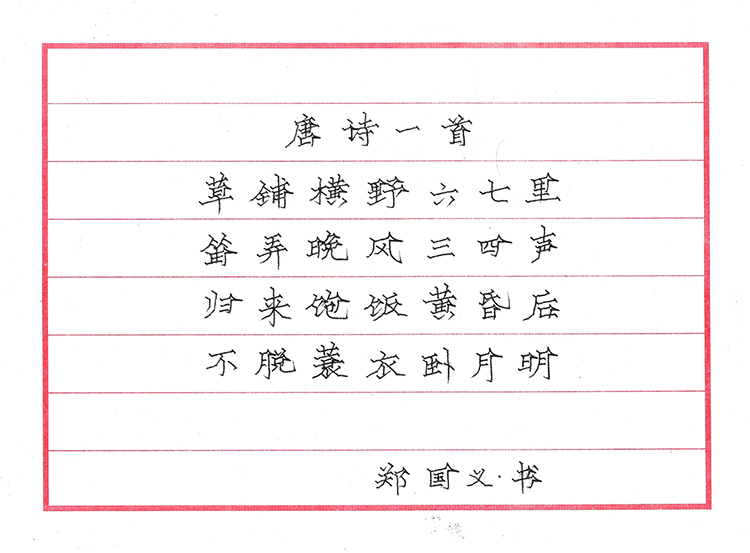 唐诗一首
草铺横野六七里
笛弄晚风三四声
归来饱饭黄昏后
不脱蓑衣卧月明
郑国义·书